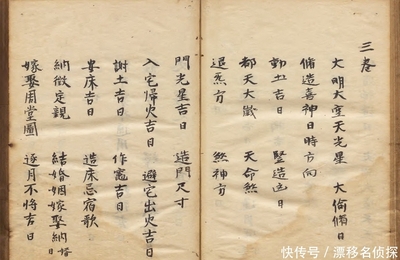 三卷
大明大空天光星 大偷脩日
脩造喜神日時方向
動土吉日 豎造凶日
都天大 天命煞
退炁方 煞神方
門光星吉日 造門尺寸
入宅歸火吉日 避宅出火吉日
謝土吉日 作竈吉日
安床吉日 造床忌宿歌
納徵定親 結婚姻嫁娶納婿日
嫁娶周堂圖 逐月不將吉日
快传号/漂移名侦探